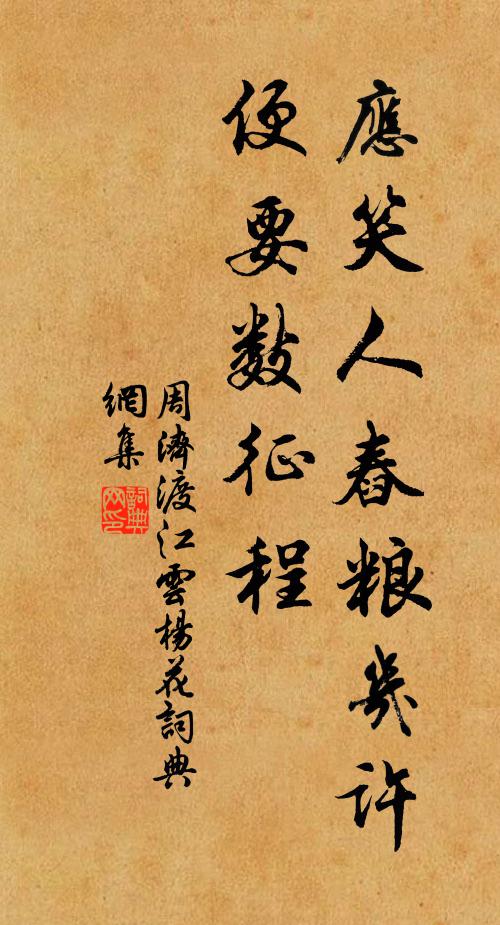 應笑人舂粮幾許
便要数征程
周濟渡江雲楊花詞典
網集
詞典网印